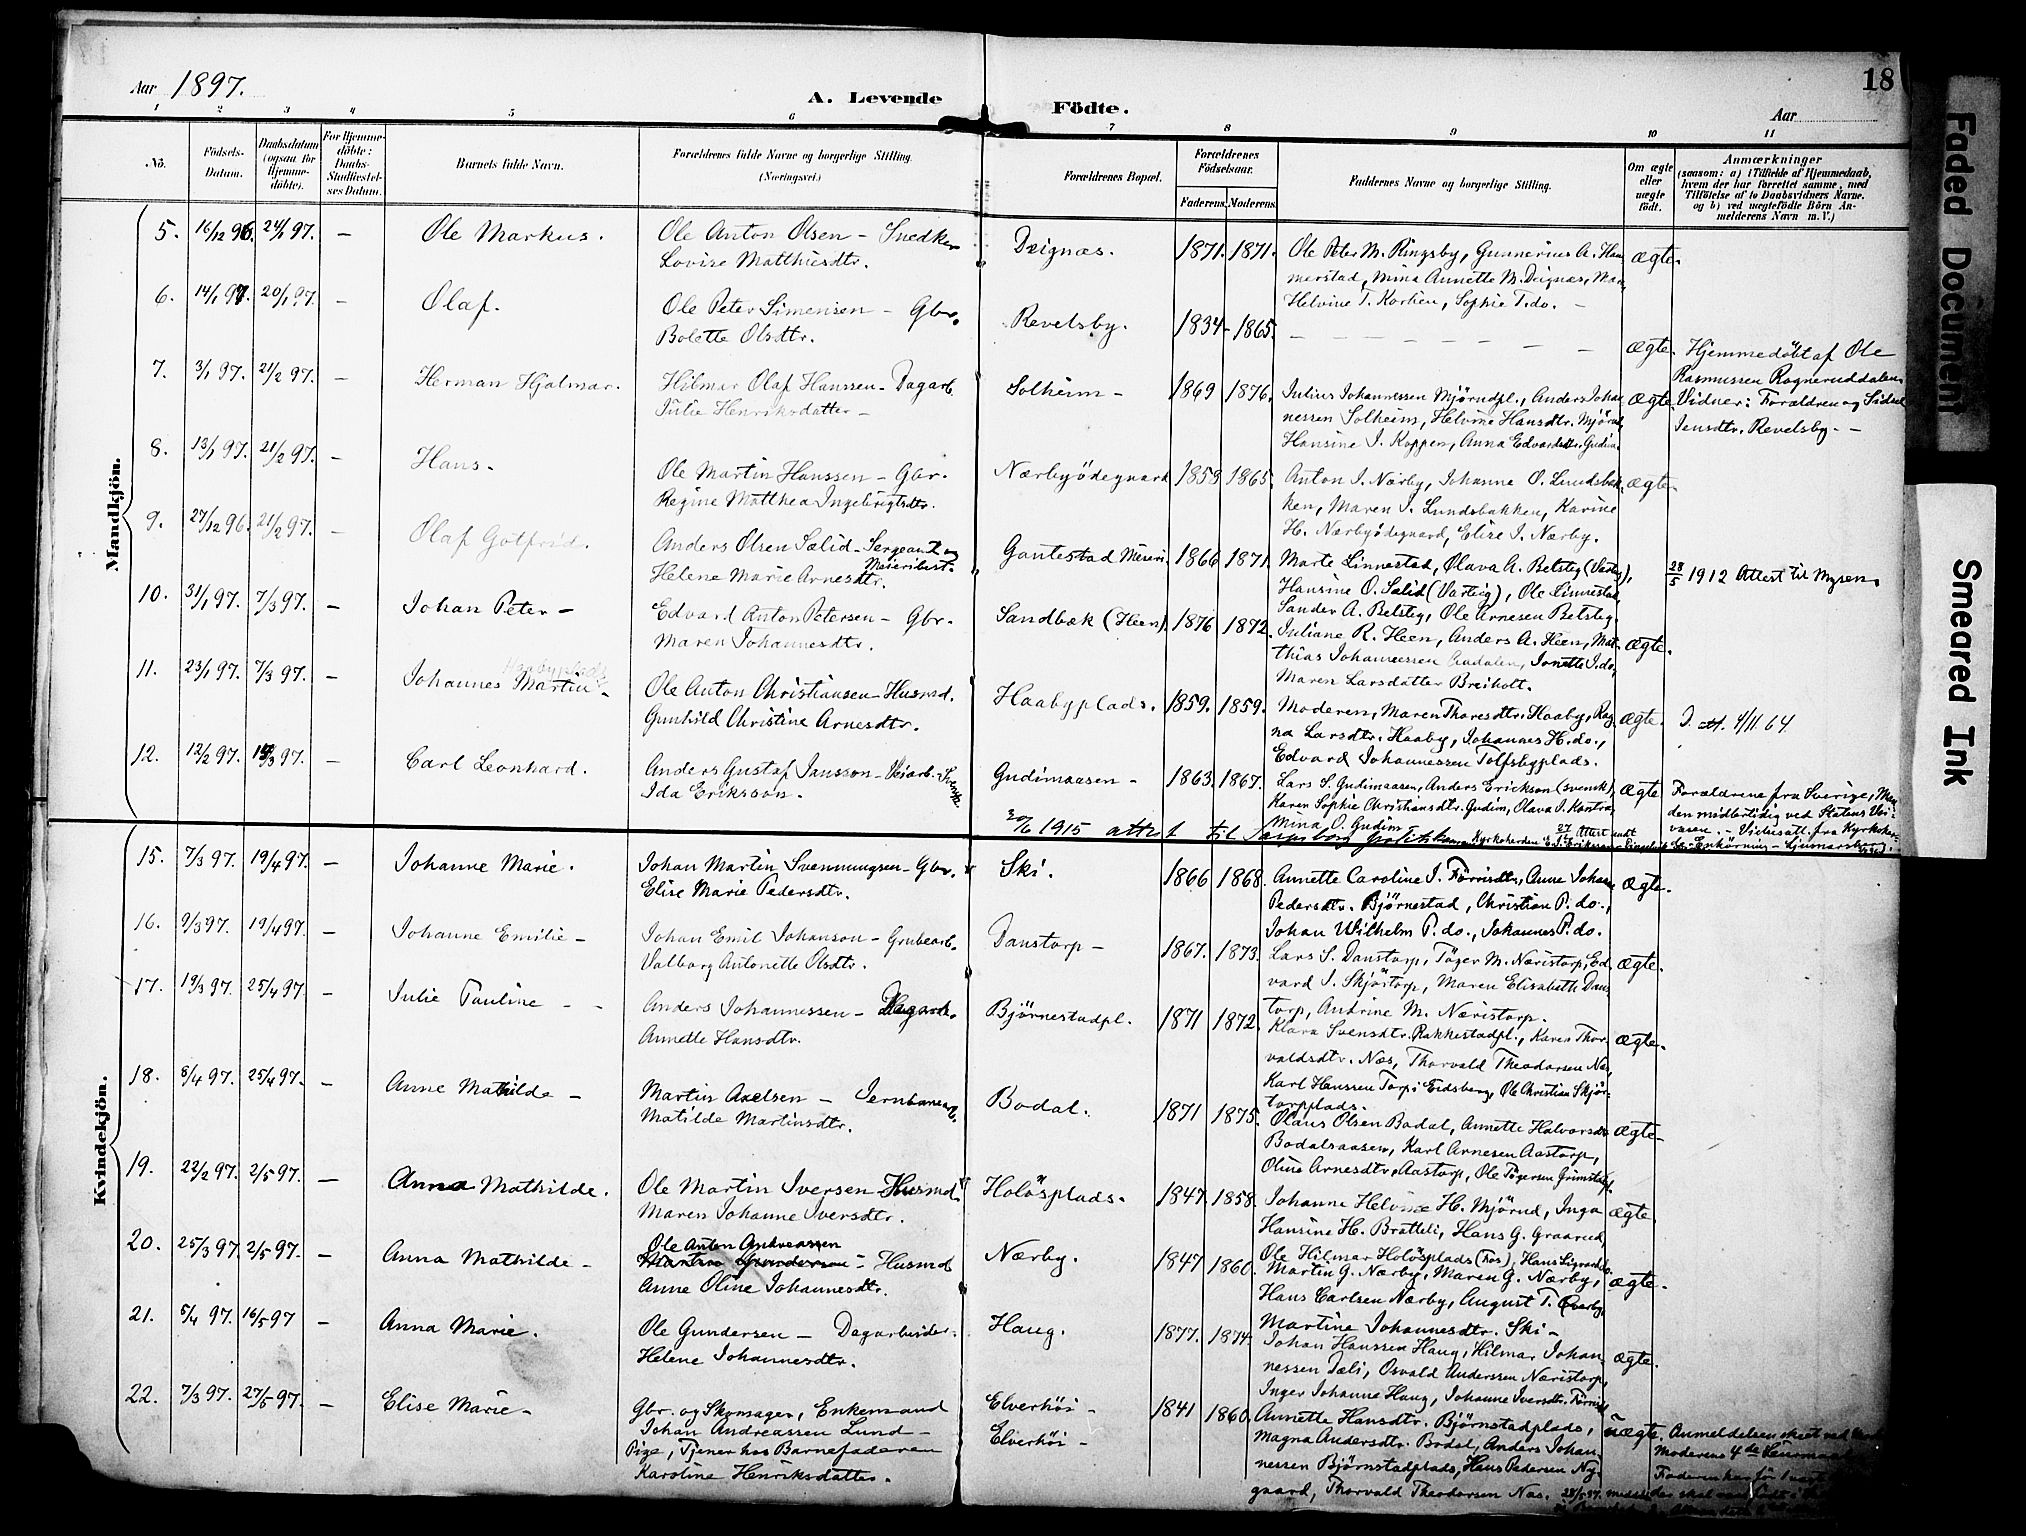 Aar 1897.
A. Levende Födte.
18
Aar
1 2 3 4 5 6 7 8 9 10 11
Nö.
Födsels-Datum.
Daabsdatum (ogsaa for Hjemmedöbte).
For Hjemmedöbte: Daabs-Stadfæstelses Datum.
Barnets fulde Navn.
Forældrenes fulde Navne og borgerlige Stilling. (Næringsvei.)
Forældrenes Bopæl.
Forældrenes Födselsaar.
Faderens. Moderens.
Faddernes Navne og borgerlige Stilling.
Om ægte eller uægte födt.
Anmærkninger
(saasom: a) i Tilfælde af Hjemmedaab,
hvem der har forrettet samme, med
Tilföielse af to Daabsvidners Navne.
og b) ved uægtefödte Börn Anmelderens Navn m. V.)
Mandkjön.
5. 16/12 96. 24/1 97. — Ole Markus. Ole Anton Olsen — Snedker Lovise Matthiesdtr. Deignæs. 1871. 1871. ægte.
Ole Peter M. Ringsby, Gunnerius A. Hammerstad, Mina Annette M. Deignæs,
Helvine T. Korsien, Sophie T. do. —
6. 14/1 97. 20/1 97. — Olaf. Ole Peter Simensen — Gbr. Bolette Olsdtr. Revelsby. 1834 — 1865. ægte.
Hjemmedöbt af Ole
Rasmussen Ragneruddalen.
Vidner: Forældren og Sidsel
Jensdtr. Revelsby. —
7. 3/1 97. 21/2 97. — Herman Hjalmar. Hilmar Olaf Hanssen — Dagarb. Julie Henriksdatter — Solheim — 1869 1876. ægte.
Julius Johannessen Mjørudpl., Anders Johannessen Solheim, Helvine Hansdtr. Mjørud,
Hansine J. Koppen, Anna Edvardsdtr. Gudim.
8. 13/1 97. 21/2 97. — Hans. Ole Martin Hanssen — Gbr. Regine Matthea Ingebrigtsdtr. Nærbyödegaard 1859 1865. ægte.
Anton J. Nærby, Johanne O. Lundsbakken, Maren J. Lundsbakken, Karine
H. Nærbyödegaard, Elise J. Nærby.
9. 27/12 96. 21/2 97. — Olaf Gotfrid. Anders Olsen Sælid — Sergeant og Meieribest. Helene Marie Arnesdtr. Gautestad Meieri. 1866 1871.
Marte Linnestad, Olava A. Belsby (Varteig),
Hansine O. Sælid (Varteig), Ole Linnestad,
Sander A. Belsby, Ole Arnesen Belsby.
28/5 1912 Attest til Mysen.
10. 31/1 97. 7/3 97. — Johan Peter — Edvard Anton Petersen — Gbr. Maren Johannesdtr. Sandbæk (Heen). 1876 1872. ægte.
Juliane R. Heen, Anders A. Heen, Matthias Johannessen Aadalen, Jonette J. do,
Maren Larsdatter Breiholt.
11. 23/1 97. 7/3 97. — Johannes Martin — Haabyplads Ole Anton Christiansen — Husmd. Gunhild Christine Arnesdtr. Haabyplads. 1859. 1859. ægte.
Moderen, Maren Thoresdtr. Haaby, Ragna Larsdtr. Haaby, Johannes H. do.,
Edvard Johannessen Tolfsbyplads.
D. att. 4/11.64
12. 12/2 97. 14/3 97. — Carl Leonhard. Anders Gustaf Jansson — Veiarb. Svensk Ida Eriksson. Gudimaasen — 1863. 1867. ægte
Lars S. Gudimaasen, Anders Erickson (svensk),
Karen Sophie Christiansdtr. Gudim, Olava J. Kantra,
Mina O. Gudim
Forældrene fra Sverige, Manden midlertidig ved Statens Veivæsen.
20/6 1915 attest til Sarpsborg
Kvindekjön.
15. 7/3 97. 19/4 97. — Johanne Marie. Johan Martin Svenningsen — Gbr. Elise Marie Pedersdtr. Ski. 1866 1868. ægte.
Annette Caroline J. Förrisdtr, Anne Johanne
Pedersdtr. Bjørnestad, Christian P. do.,
Johan Wilhelm P. do., Johannes P. do.
16. 9/3 97. 19/4 97. — Johanne Emilie — Johan Emil Johanson — Grubearb. Valborg Antonette Olsdtr. Danstorp — 1867. 1873. ægte.
Lars S. Danstorp, Töger M. Næristorp, Edvard J. Skjörtorp, Maren Elisabeth Danstorp, Andrine M. Næristorp.
17. 19/3 97. 25/4 97. — Julie Pauline — Anders Johannessen — Dagarb. Annette Hansdtr. Bjørnestadpl. 1871 1872. ægte.
Klara Svensdtr. Rakkestadpl., Karen Thorvaldsdtr. Næs, Thorvald Theodorsen Næs,
Karl Hanssen Torp i Eidsberg, Ole Christian Skjörtorpplads.
18. 8/4 97. 25/4 97. — Anne Mathilde — Martin Axelsen — Jernbanearb. Matilde Martinsdtr. Bodal. 1871 1875. ægte —
Olaus Olsen Bodal, Annette Halvorsdtr
Bodalsaasen, Karl Arnesen Aastorp,
Oline Arnesdtr. Aastorp, Ole Tögersen Grimstad.
19. 22/2 97. 2/5 97. — Anna Mathilde. Ole Martin Iversen Husmd. Maren Johanne Iversdtr. Holösplads. 1847. 1858. ægte.
Johanne Helvine H. Mjörud, Inga
Hansine H. Bratteli, Hans G. Graarud,
Ole Hilmar Holösplads (Fos),
20. 25/3 97. 2/5 97. — Anna Mathilde — Ole Anton Andreassen Martin Gundersen — Husmd Anne Oline Johannesdtr. Nærby. 1847 1860. ægte.
Martin G. Nærby, Maren G. Nærby,
Hans Carlsen Nærby, August T. Överby,
Martine Johannesdtr. Ski —
21. 5/4 97. 16/5 97 — Anna Marie. Ole Gundersen — Dagarbeider. Helene Johannesdtr. Haug. 1877. 1874. ægte.
Johan Hanssen Haug, Hilmar Johannessen Dæli, Osvald Anderssen Næristorp,
Inger Johanne Haug, Johanne Iversdtr.
22. 7/3 97. 27/5 97. — Elise Marie — Gbr. og Skomager, Enkemand Johan Andreassen Lund — Pige, Tjener hos Barnefaderen Karoline Henriksdatter. Elverhöi — Elverhöi — 1841 1860. uægte.
Annette Hansdtr. Bjørnstadplads,
Magna Andersdtr. Bodal, Anders Johannessen Bjørnstadplads, Hans Pedersen Nygaard, Thorvald Theodorsen Næs.
Anmeldelsen skeet ved
Moderens 4de
Faderen har för 1
Faded Document
Smeared Ink